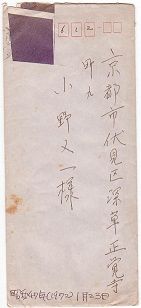 612
京都市伏見区深草正覚
町九
小野又一様
昭和47年(1972) 1月23日